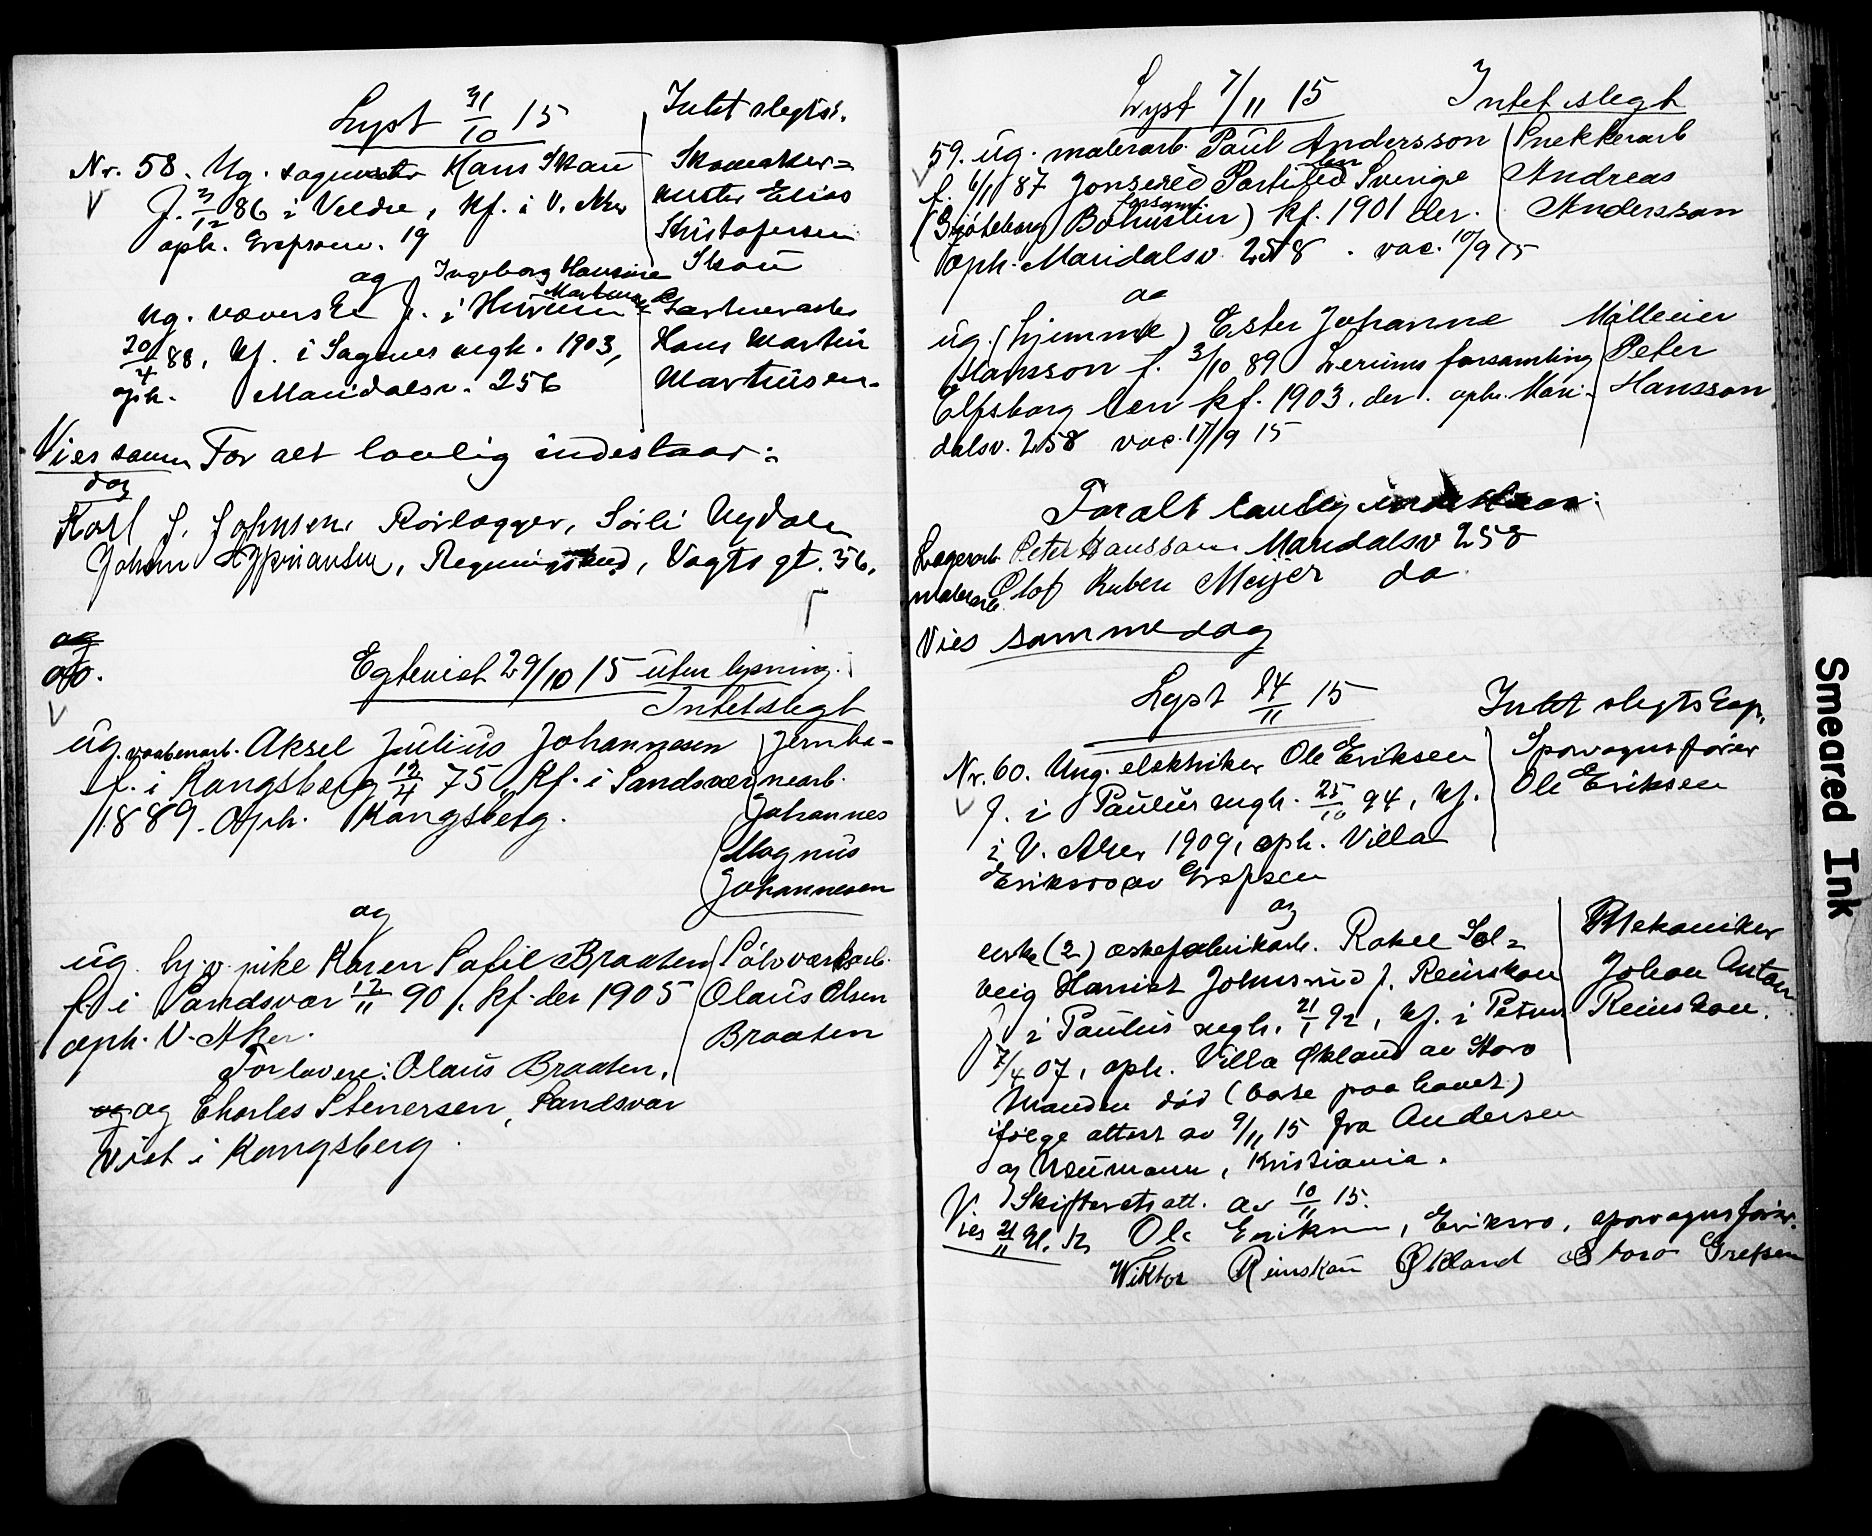 Lyst 31/10 15
Intet slegtsk.
Nr. 58. Ug. Hans Skau
Skomaker=
f. 3/12 86 i Veldre, kf. i V. Aker
mester Elias
oph. Grefsenv. 19
Kristofersen
Skau
og Ingeborg Hansine
Martinsen
ug. væverske f. i Hurum
Hans Martin
20/4 88, kf. i Sagenes mgh. 1903,
Martinsen.
oph. Maridalsv. 256
Vies samme dag
For alt lovlig indestaar:
Karl J. Johnsen, Rørlægger, Sørli Nydalen
Johan Kyprianusen, Regningsbud, Vogts gt. 56.
og
Egteviet 29/10 15 uten lysning.
Intet slegt
ug. vaabenarb. Aksel Julius Johannesen
Jernba-
f. i Kongsberg 12/4 75, kf. i Sandsvær
nearb.
1889. Oph. Kongsberg.
Johannes
Magnus
Johannesen
og
ug. hj. v. pike Karen Pafil Braaten
Sølvværksarb.
f. i Sandsvær 12/11 90, kf. der 1905
Olaus Olsen
oph. V. Aker.
Braaten
Forlovere: Olaus Braaten,
og og Charles Stenersen, Sandsvær
Viet i Kongsberg.
Lyst 7/11 15
Intet slegt
59. ug. malerarb. Paul Andersson
Snekkerarb
f. 6/1 87 Jonsered Partille Sverige
Andreas
(Gøteborg Bohuslen) kf. 1901 der.
Andersson
oph. Maridalsv. 258. vac. 10/9 15
og
ug. (hjemme) Ester Johanne
Mølleeier
Hansson f. 3/10 89 Lerums forsamling
Peter
Elfsborg len kf. 1903. der. oph. Mari-
Hansson
dalsv. 258 vac. 17/9 15
For alt lovlig indestaar:
Lagerarb. Peter Hansson Maridalsv 258
malerarb. Olof Ruben Meijer do
Vies samme dag
Lyst 14/11 15
Intet slegtskap.
Nr. 60. Ung. elektriker Ole Eriksen
Sporvognsfører
f. i Paulus mgh. 25/10 94, kf.
Ole Eriksen
i V. Aker 1909, oph. Villa
Eriksro av Grefsen
og
enke (2) æskefabrikarb. Rakel Sol=
Mekaniker
veig Harriet Johnsrud f. Reinskou
Johan Anton
f. i Paulus mgh. 21/1 92, kf. i Petrus
Reinskou.
7/4 07, oph. Villa Økland av Storo
Manden død (borte paa havet)
ifølge attest av 9/11 15 fra Andersen
og Neumann, Kristiania.
Skifterets att. av 10/11 15.
Vies 21/11 Kl.
Ole Eriksen, Eriksro, sporvognsfører.
Wiktor Reinskau Økland Storo Grefsen
Smeared Ink